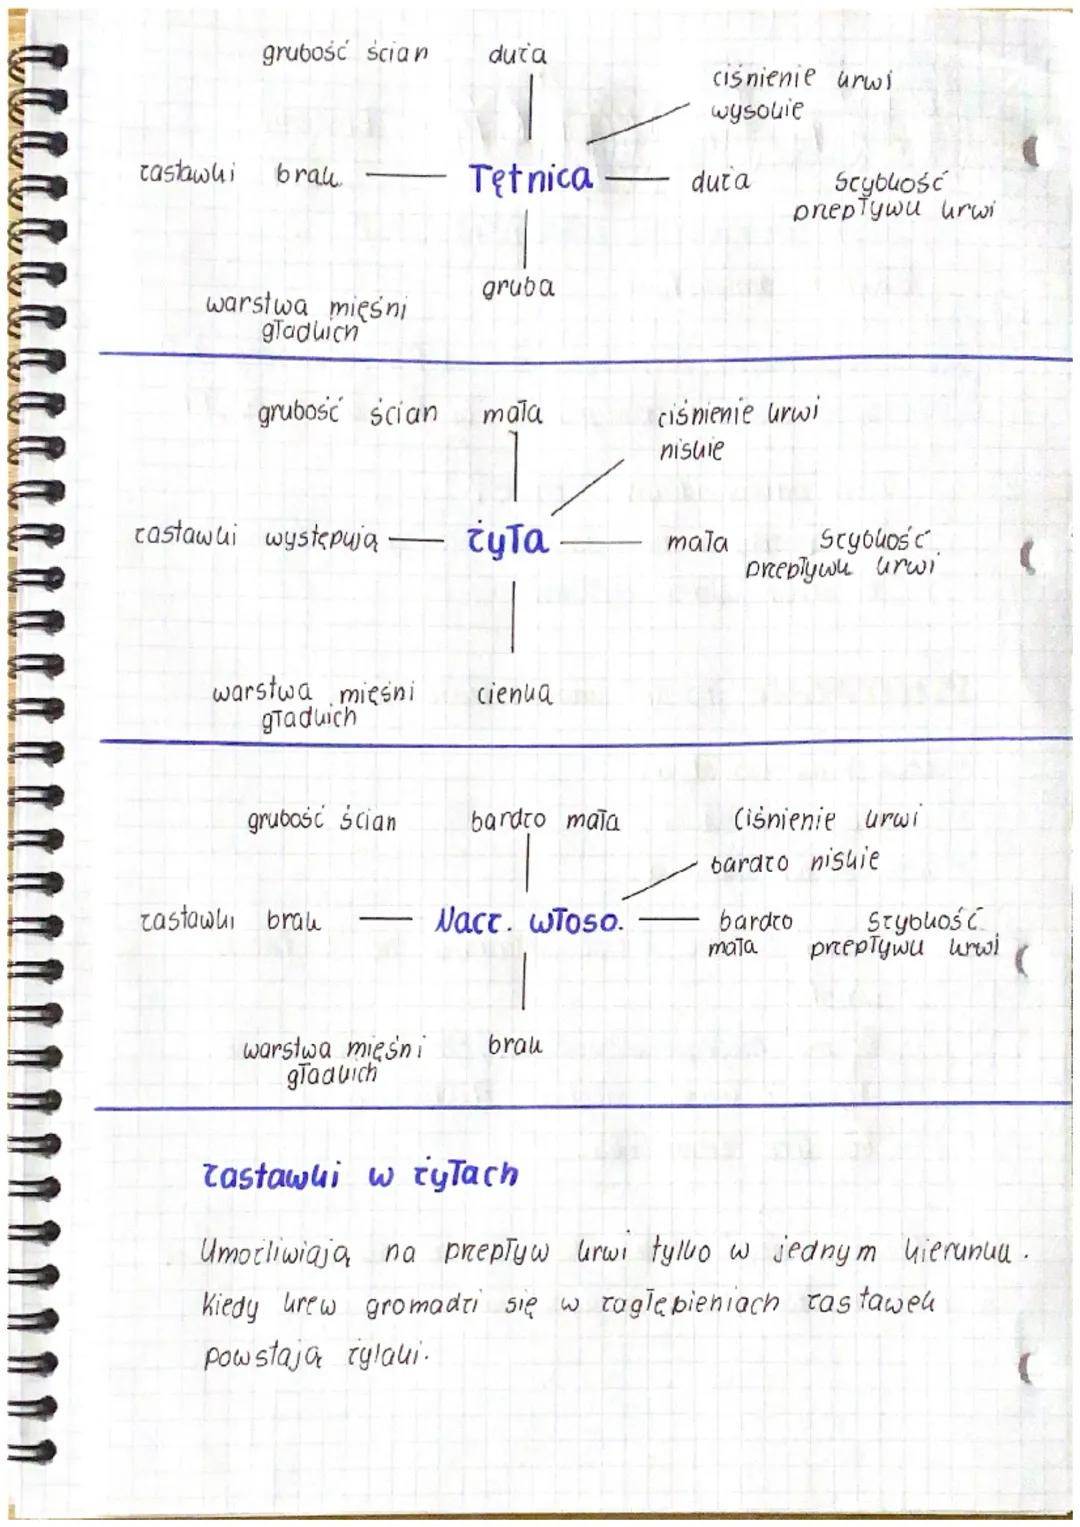 grubość ścian duża
ciśnienie krwi
wysokie
zastawki brak Tętnica duża szybkość
przepływu krwi
gruba
warstwa mięśni
gładkich
grubość ścian mała ciśnienie krwi
niskie
zastawki występują żyła mała szybkość
przepływu krwi
warstwa mięśni cienka
gładkich
grubość ścian bardzo mała Ciśnienie krwi
bardzo niskie
zastawki brak Nacz. włoso. bardzo szybkość
mała przepływu krwi
warstwa mięśni brak
gładkich
zastawki w żyłach
Umożliwiają na przepływ krwi tylko w jednym kierunku.
Kiedy krew gromadzi się w zagłębieniach zastawek
powstają żylaki.